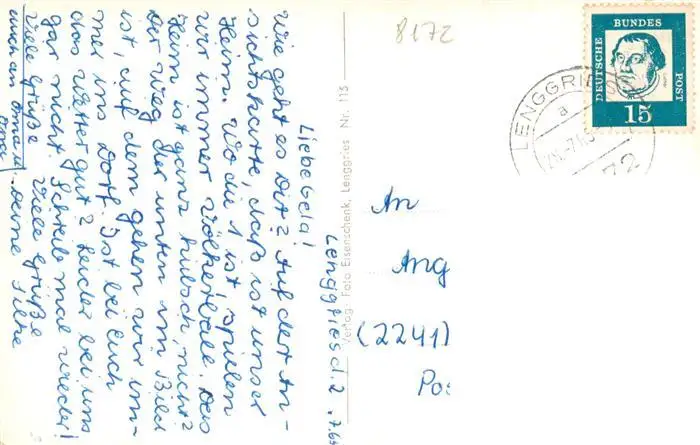 Lenggries d. 2.7.65
Liebe Gela!
Wie geht es Dir? Auf der An-
sichtskarte, daß ist unser
Heim. Wo die 1 ist spielen
wir immer Völkerball. Das
Heim ist ganz hübsch, nicht?
Der Weg der unten im Bild
ist, auf dem gehen wir im-
mer ins Dorf. Ist bei euch
das Wetter gut? Leider bei uns
gar nicht. Schreib mal wieder!
Viele Grüße
Deine Silke
Viele Grüße
auch an Oma u.
Opa
Verlag Foto Eisenschenk, Lenggries Nr. 113
8172
DEUTSCHE
BUNDES
POST
15
LENGGRIES
a
72
An
Ang
(2241)
Pos